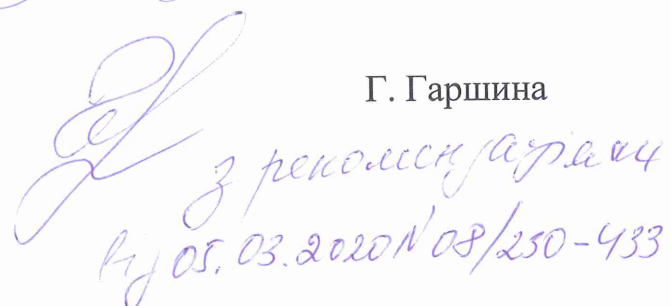 Г. Гаршина
з рекомендаціями
від 05.03.2020 N 08/250-433